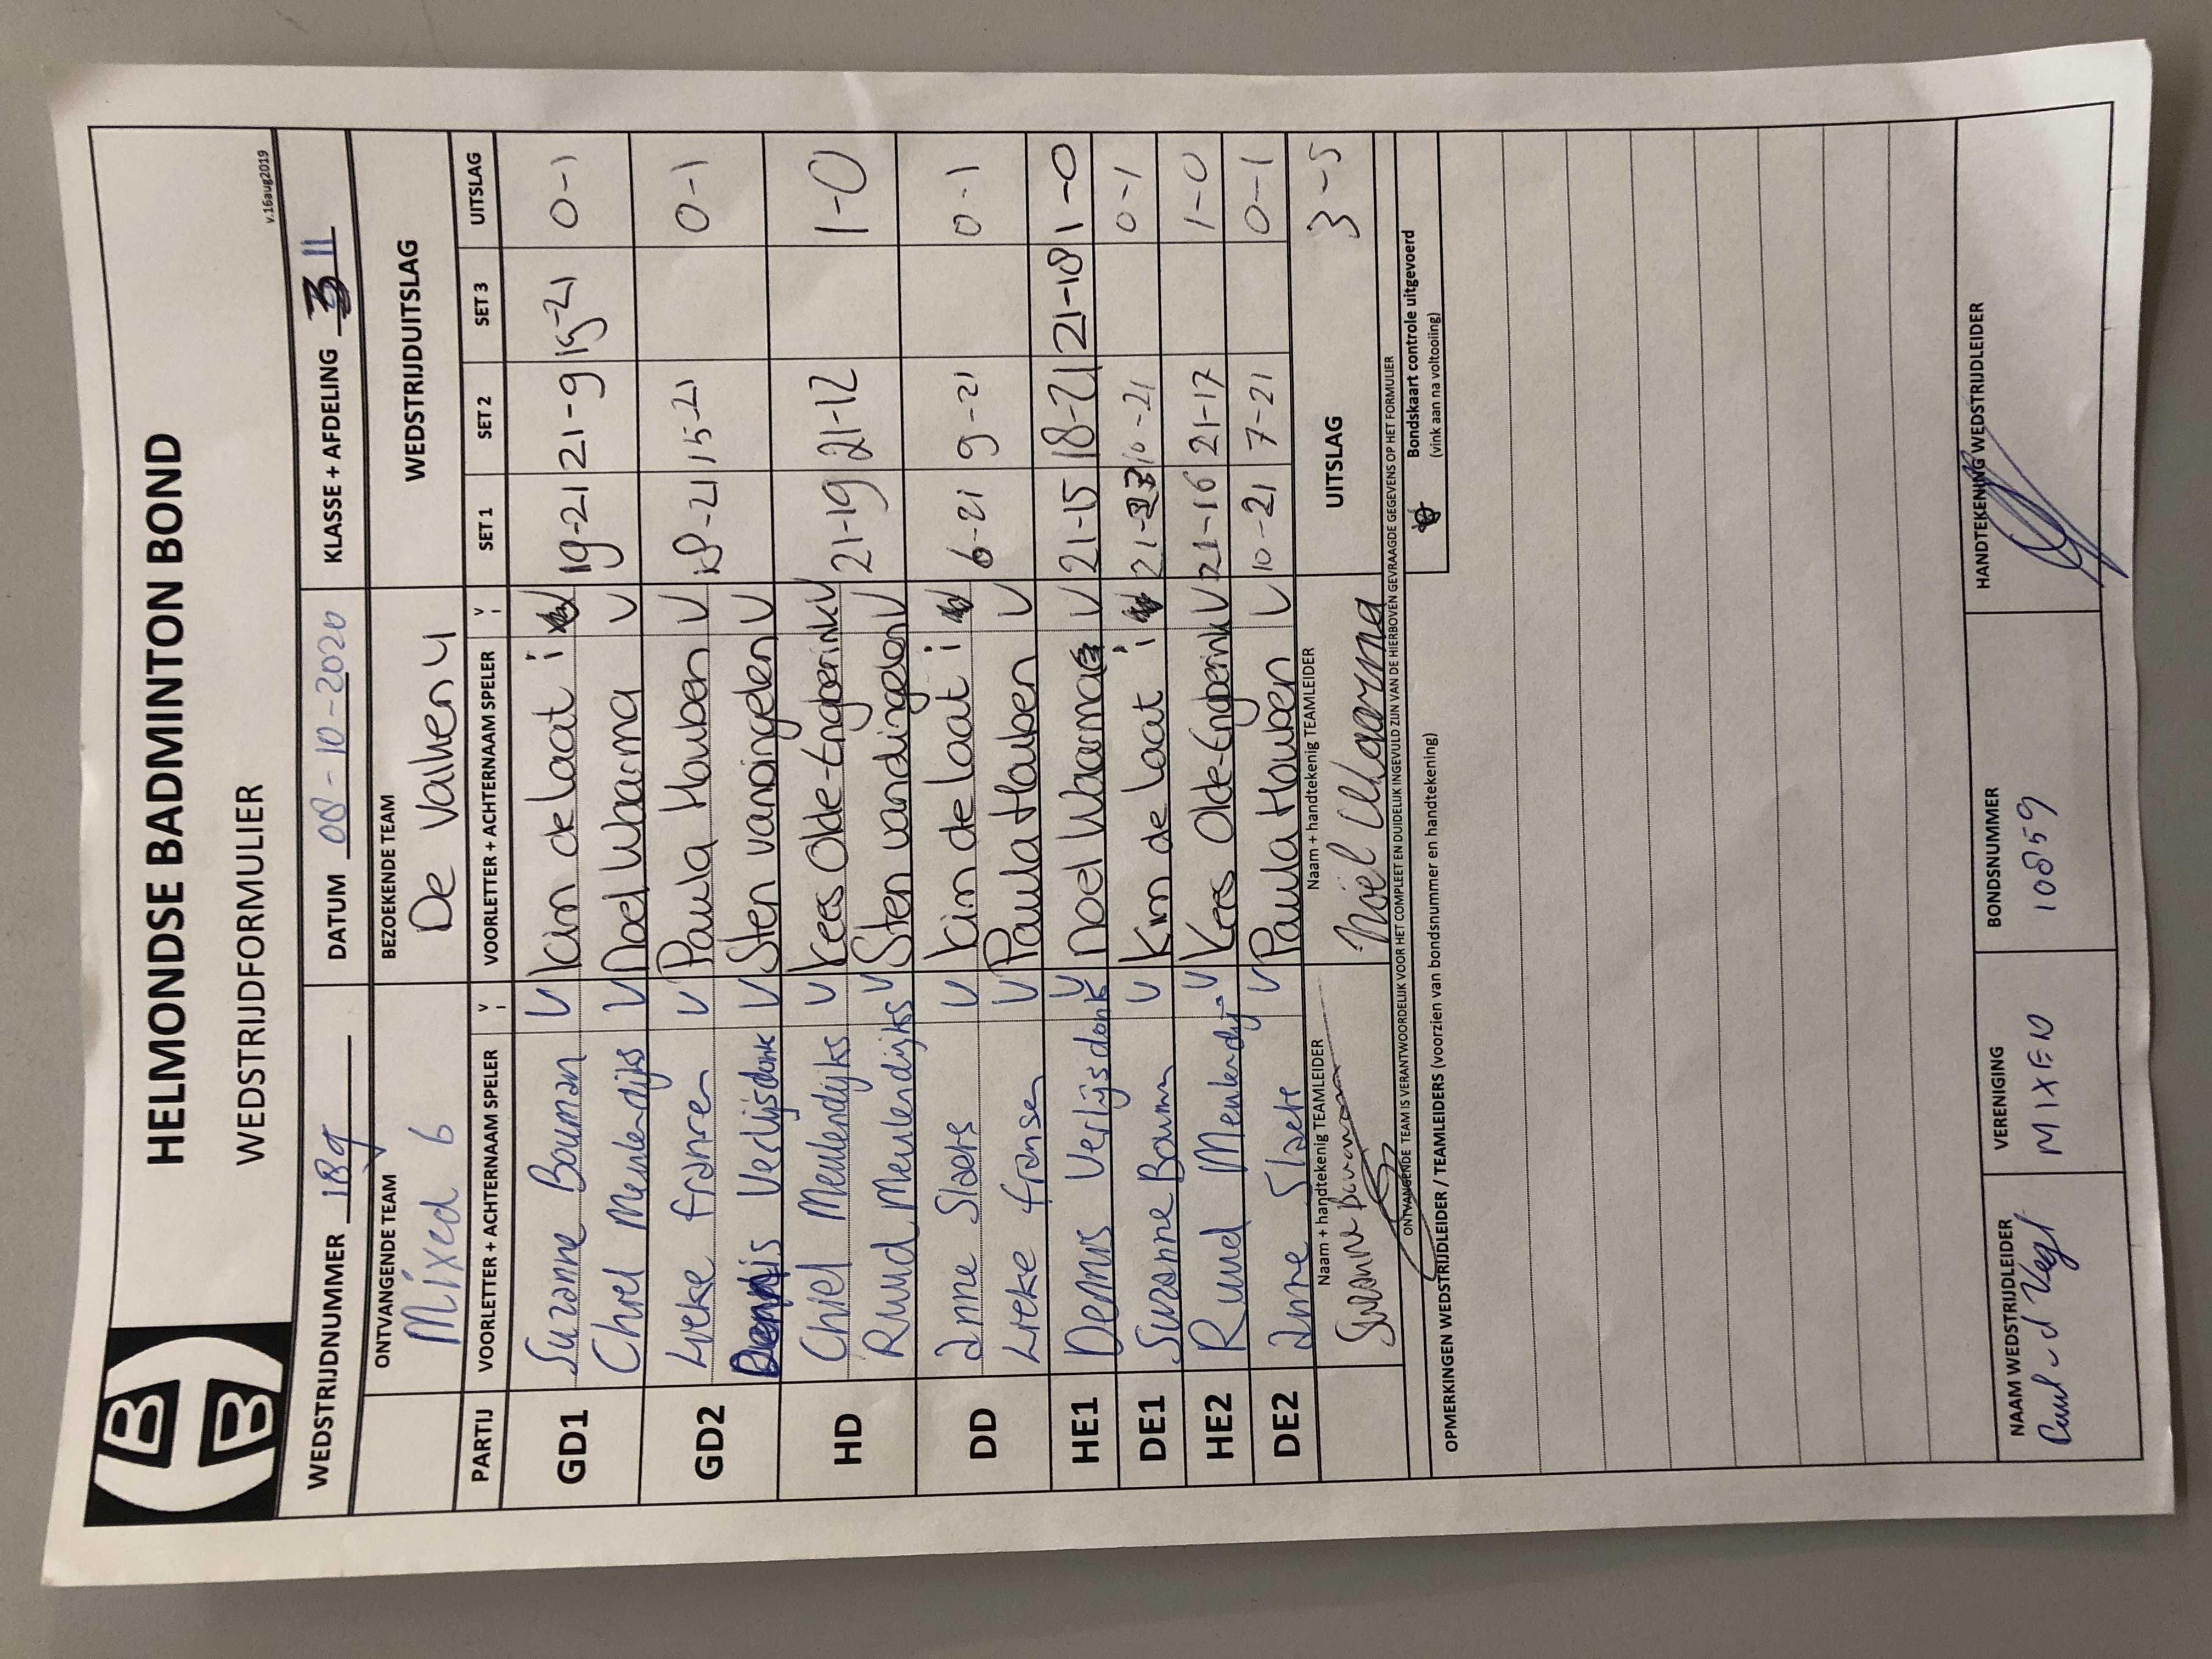 HELMONDSE BADMINTON BOND
WEDSTRIJDFORMULIER
v.16aug2019
WEDSTRIJDNUMMER 189 DATUM 08-10-2020 KLASSE + AFDELING 3 II
ONTVANGENDE TEAM BEZOEKENDE TEAM WEDSTRIJDUITSLAG
Mixed 6 De Valken 4
PARTIJ VOORLETTER + ACHTERNAAM SPELER V VOORLETTER + ACHTERNAAM SPELER V SET 1 SET 2 SET 3 UITSLAG
GD1 Suzanne Bouman V Kim de Laat i 19-21 21-9 15-21 0-1
Chiel Meulendijks V Noel Waarma V
GD2 Lieke Fransen V Paula Houben V 18-21 15-21 0-1
Dennis Verlijsdonk V Sten van Dingelen V
HD Chiel Meulendijks V Kees Olde-Engberink V 21-19 21-12 1-0
Ruud Meulendijks V Sten van Dingelen V
DD Anne Slaets V Kim de Laat i 6-21 9-21 0-1
Lieke Fransen V Paula Houben V
HE1 Dennis Verlijsdonk V Noel Waarma V 21-15 18-21 21-18 1-0
DE1 Suzanne Bouman V Kim de Laat i 21-23 10-21 0-1
HE2 Ruud Meulendij- V Kees Olde-Engberink V 21-16 21-17 1-0
DE2 Anne Slaets V Paula Houben V 10-21 7-21 0-1
Naam + handtekenig TEAMLEIDER Naam + handtekenig TEAMLEIDER UITSLAG 3-5
Suzanne Bouman Noël Waarma
ONTVANGENDE TEAM IS VERANTWOORDELIJK VOOR HET COMPLEET EN DUIDELIJK INGEVULD ZIJN VAN DE HIERBOVEN GEVRAAGDE GEGEVENS OP HET FORMULIER
Bondskaart controle uitgevoerd
(vink aan na voltooiing)
OPMERKINGEN WEDSTRIJDLEIDER / TEAMLEIDERS (voorzien van bondsnummer en handtekening)
NAAM WEDSTRIJDLEIDER VERENIGING BONDSNUMMER HANDTEKENING WEDSTRIJDLEIDER
Ruud v d Vegt MIXED 10859